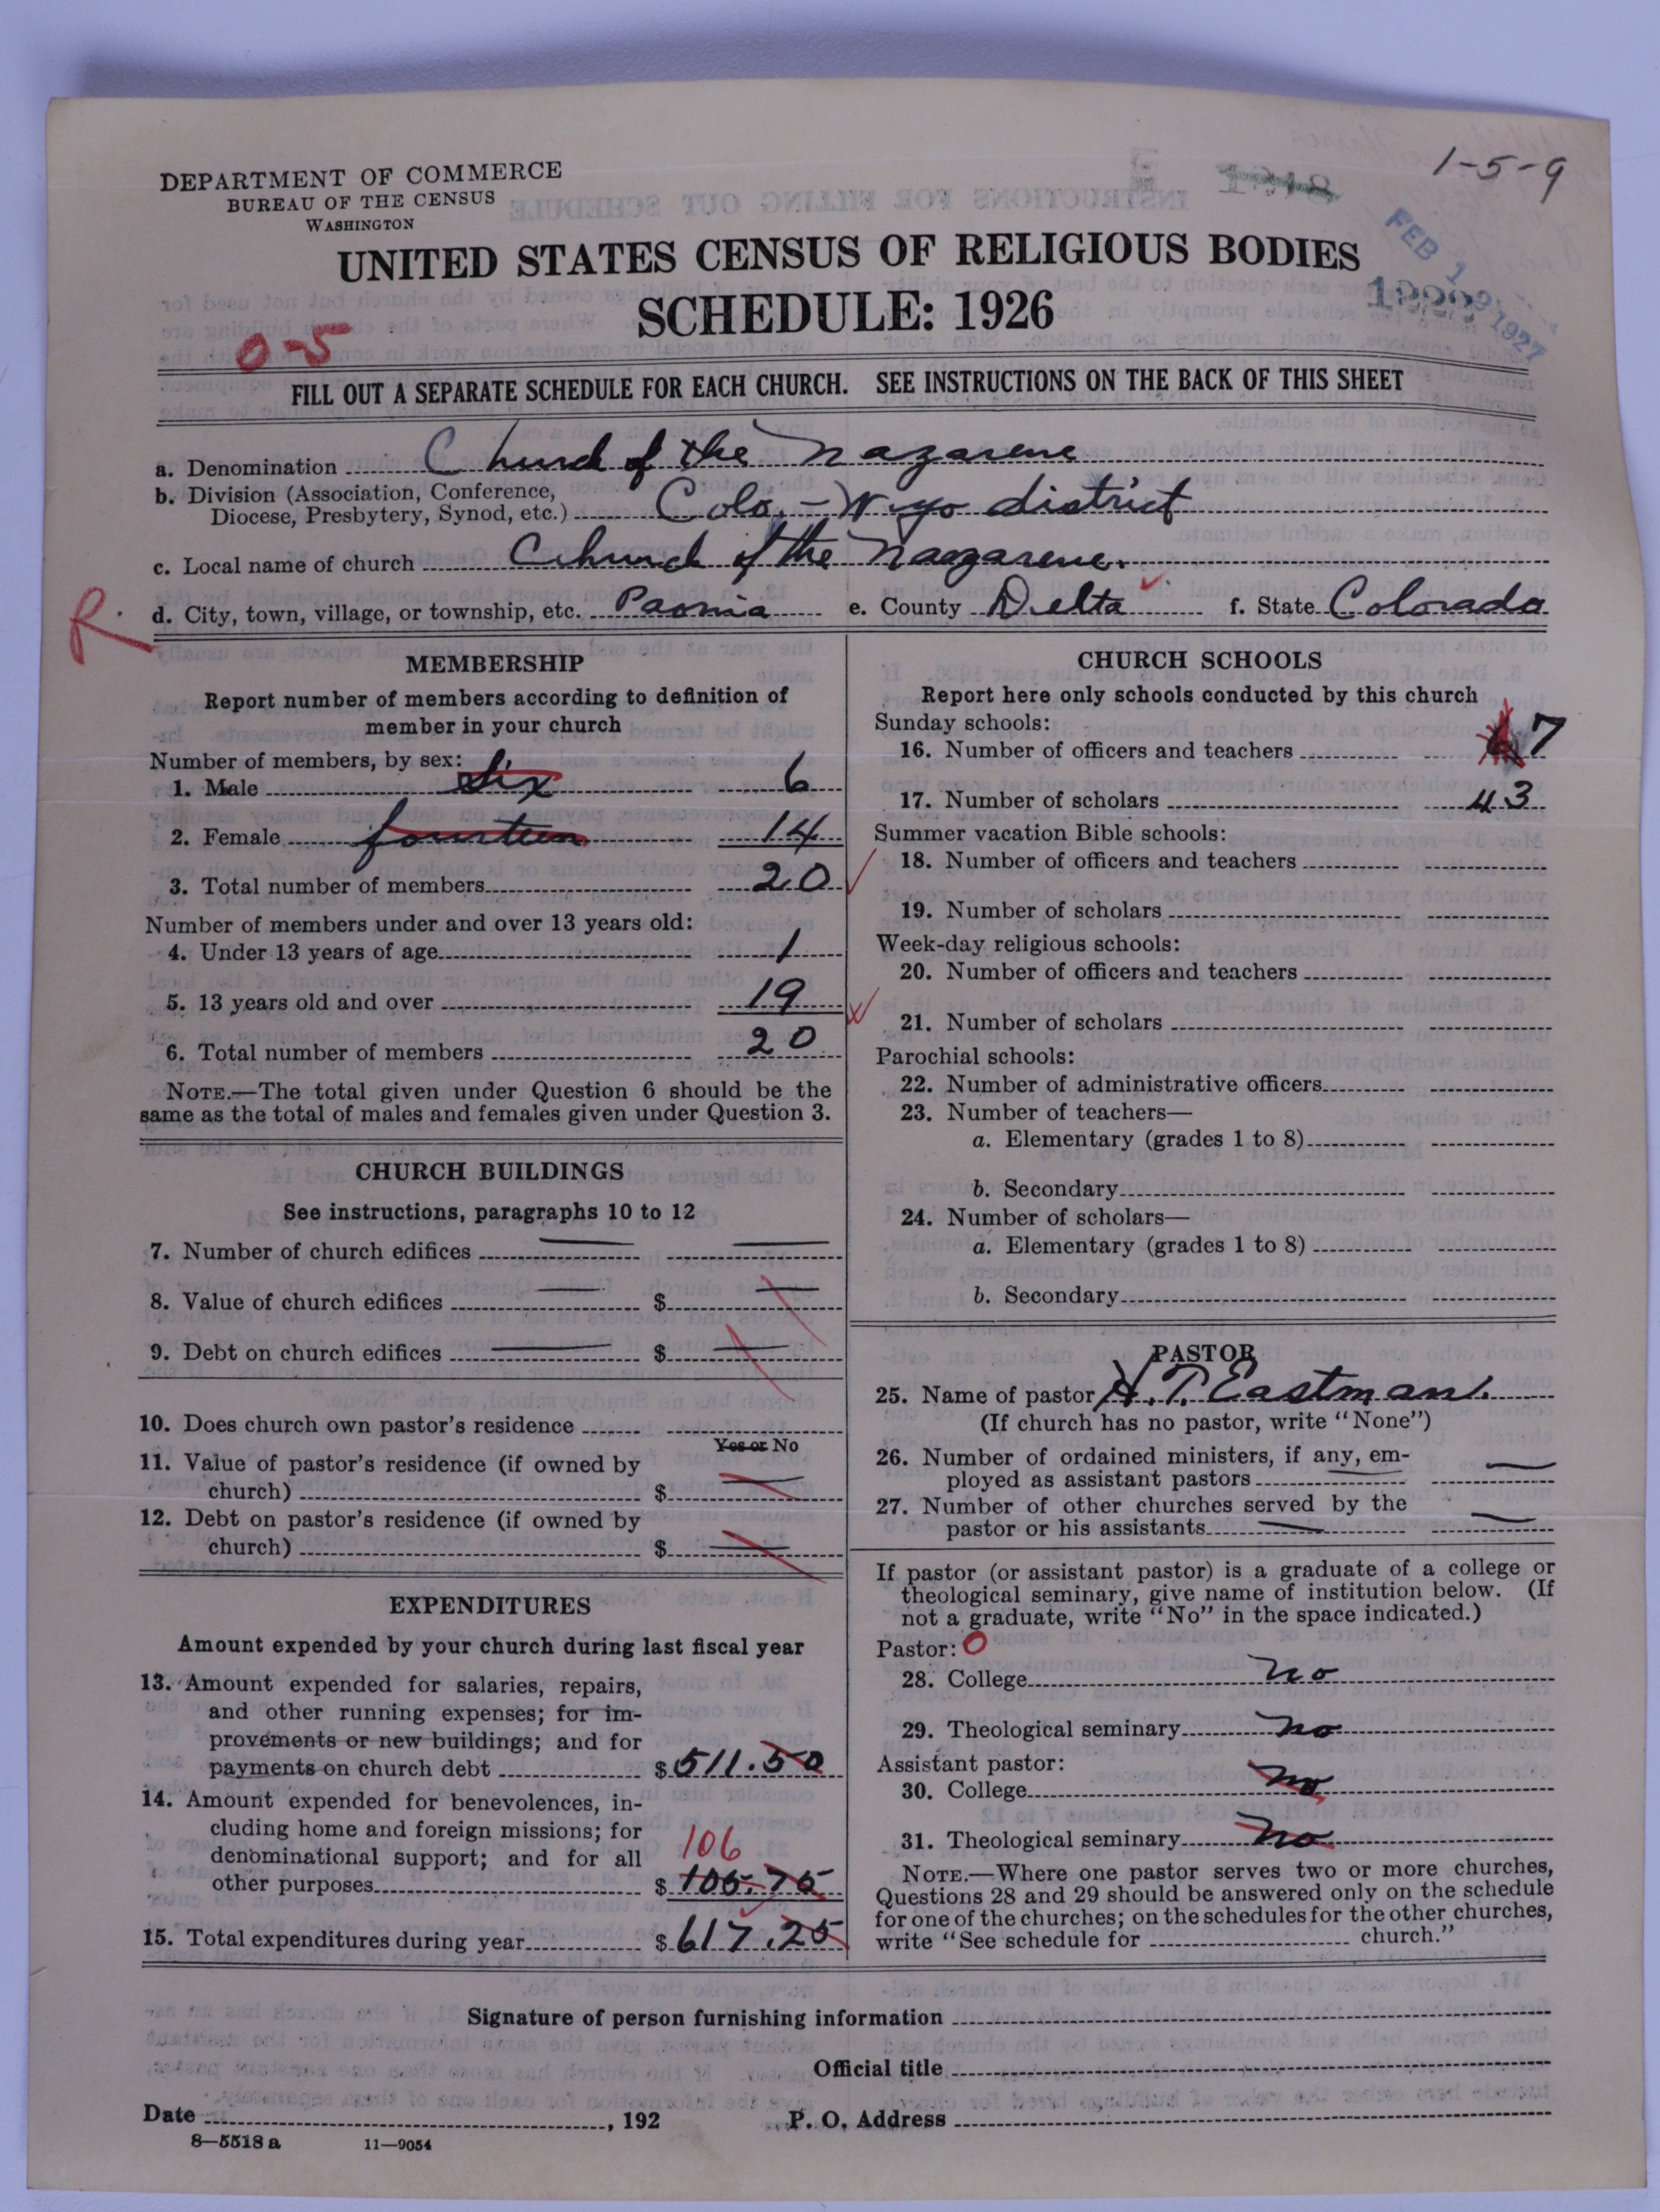 1-5-9
DEPARTMENT OF COMMERCE
BUREAU OF THE CENSUS
WASHINGTON
FEB 1 1927
UNITED STATES CENSUS OF RELIGIOUS BODIES
SCHEDULE: 1926
0-5
FILL OUT A SEPARATE SCHEDULE FOR EACH CHURCH. SEE INSTRUCTIONS ON THE BACK OF THIS SHEET
a. Denomination Church of the Nazarene
b. Division (Association, Conference,
Diocese, Presbytery, Synod, etc.) Colo.-Wyo district
c. Local name of church Church of the Nazarene.
R.
d. City, town, village, or township, etc. Paonia e. County Delta f. State Colorado
MEMBERSHIP
Report number of members according to definition of
member in your church
Number of members, by sex:
1. Male Six 6
2. Female fourteen 14
3. Total number of members 20
Number of members under and over 13 years old:
4. Under 13 years of age 1
5. 13 years old and over 19
6. Total number of members 20
NOTE.—The total given under Question 6 should be the
same as the total of males and females given under Question 3.
CHURCH BUILDINGS
See instructions, paragraphs 10 to 12
7. Number of church edifices
8. Value of church edifices $
9. Debt on church edifices $
10. Does church own pastor's residence
Yes or No
11. Value of pastor's residence (if owned by
church) $
12. Debt on pastor's residence (if owned by
church) $
EXPENDITURES
Amount expended by your church during last fiscal year
13. Amount expended for salaries, repairs,
and other running expenses; for im-
provements or new buildings; and for
payments on church debt $511.50
14. Amount expended for benevolences, in-
cluding home and foreign missions; for
denominational support; and for all 106
other purposes $105.75
15. Total expenditures during year $617.25
CHURCH SCHOOLS
Report here only schools conducted by this church
Sunday schools:
16. Number of officers and teachers 7
17. Number of scholars 43
Summer vacation Bible schools:
18. Number of officers and teachers
19. Number of scholars
Week-day religious schools:
20. Number of officers and teachers
21. Number of scholars
Parochial schools:
22. Number of administrative officers
23. Number of teachers—
a. Elementary (grades 1 to 8)
b. Secondary
24. Number of scholars—
a. Elementary (grades 1 to 8)
b. Secondary
PASTOR
25. Name of pastor H. T. Eastman.
(If church has no pastor, write "None")
26. Number of ordained ministers, if any, em-
ployed as assistant pastors
27. Number of other churches served by the
pastor or his assistants
If pastor (or assistant pastor) is a graduate of a college or
theological seminary, give name of institution below. (If
not a graduate, write "No" in the space indicated.)
Pastor: 0
28. College no
29. Theological seminary no
Assistant pastor:
30. College no
31. Theological seminary no
NOTE.—Where one pastor serves two or more churches,
Questions 28 and 29 should be answered only on the schedule
for one of the churches; on the schedules for the other churches,
write "See schedule for church."
Signature of person furnishing information
Official title
Date , 192 P. O. Address
8—5518 a 11—9054